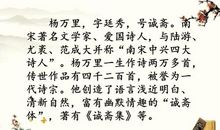 杨万里，字廷秀，号诚斋。南
宋著名文学家、爱国诗人，与陆游、
尤袤、范成大并称“南宋中兴四大
诗人”。杨万里一生作诗两万多首，
传世作品有四千二百首，被誉为一
代诗宗。他创造了语言浅近明白、
清新自然，富有幽默情趣的“诚斋
体”，著有《诚斋集》等。